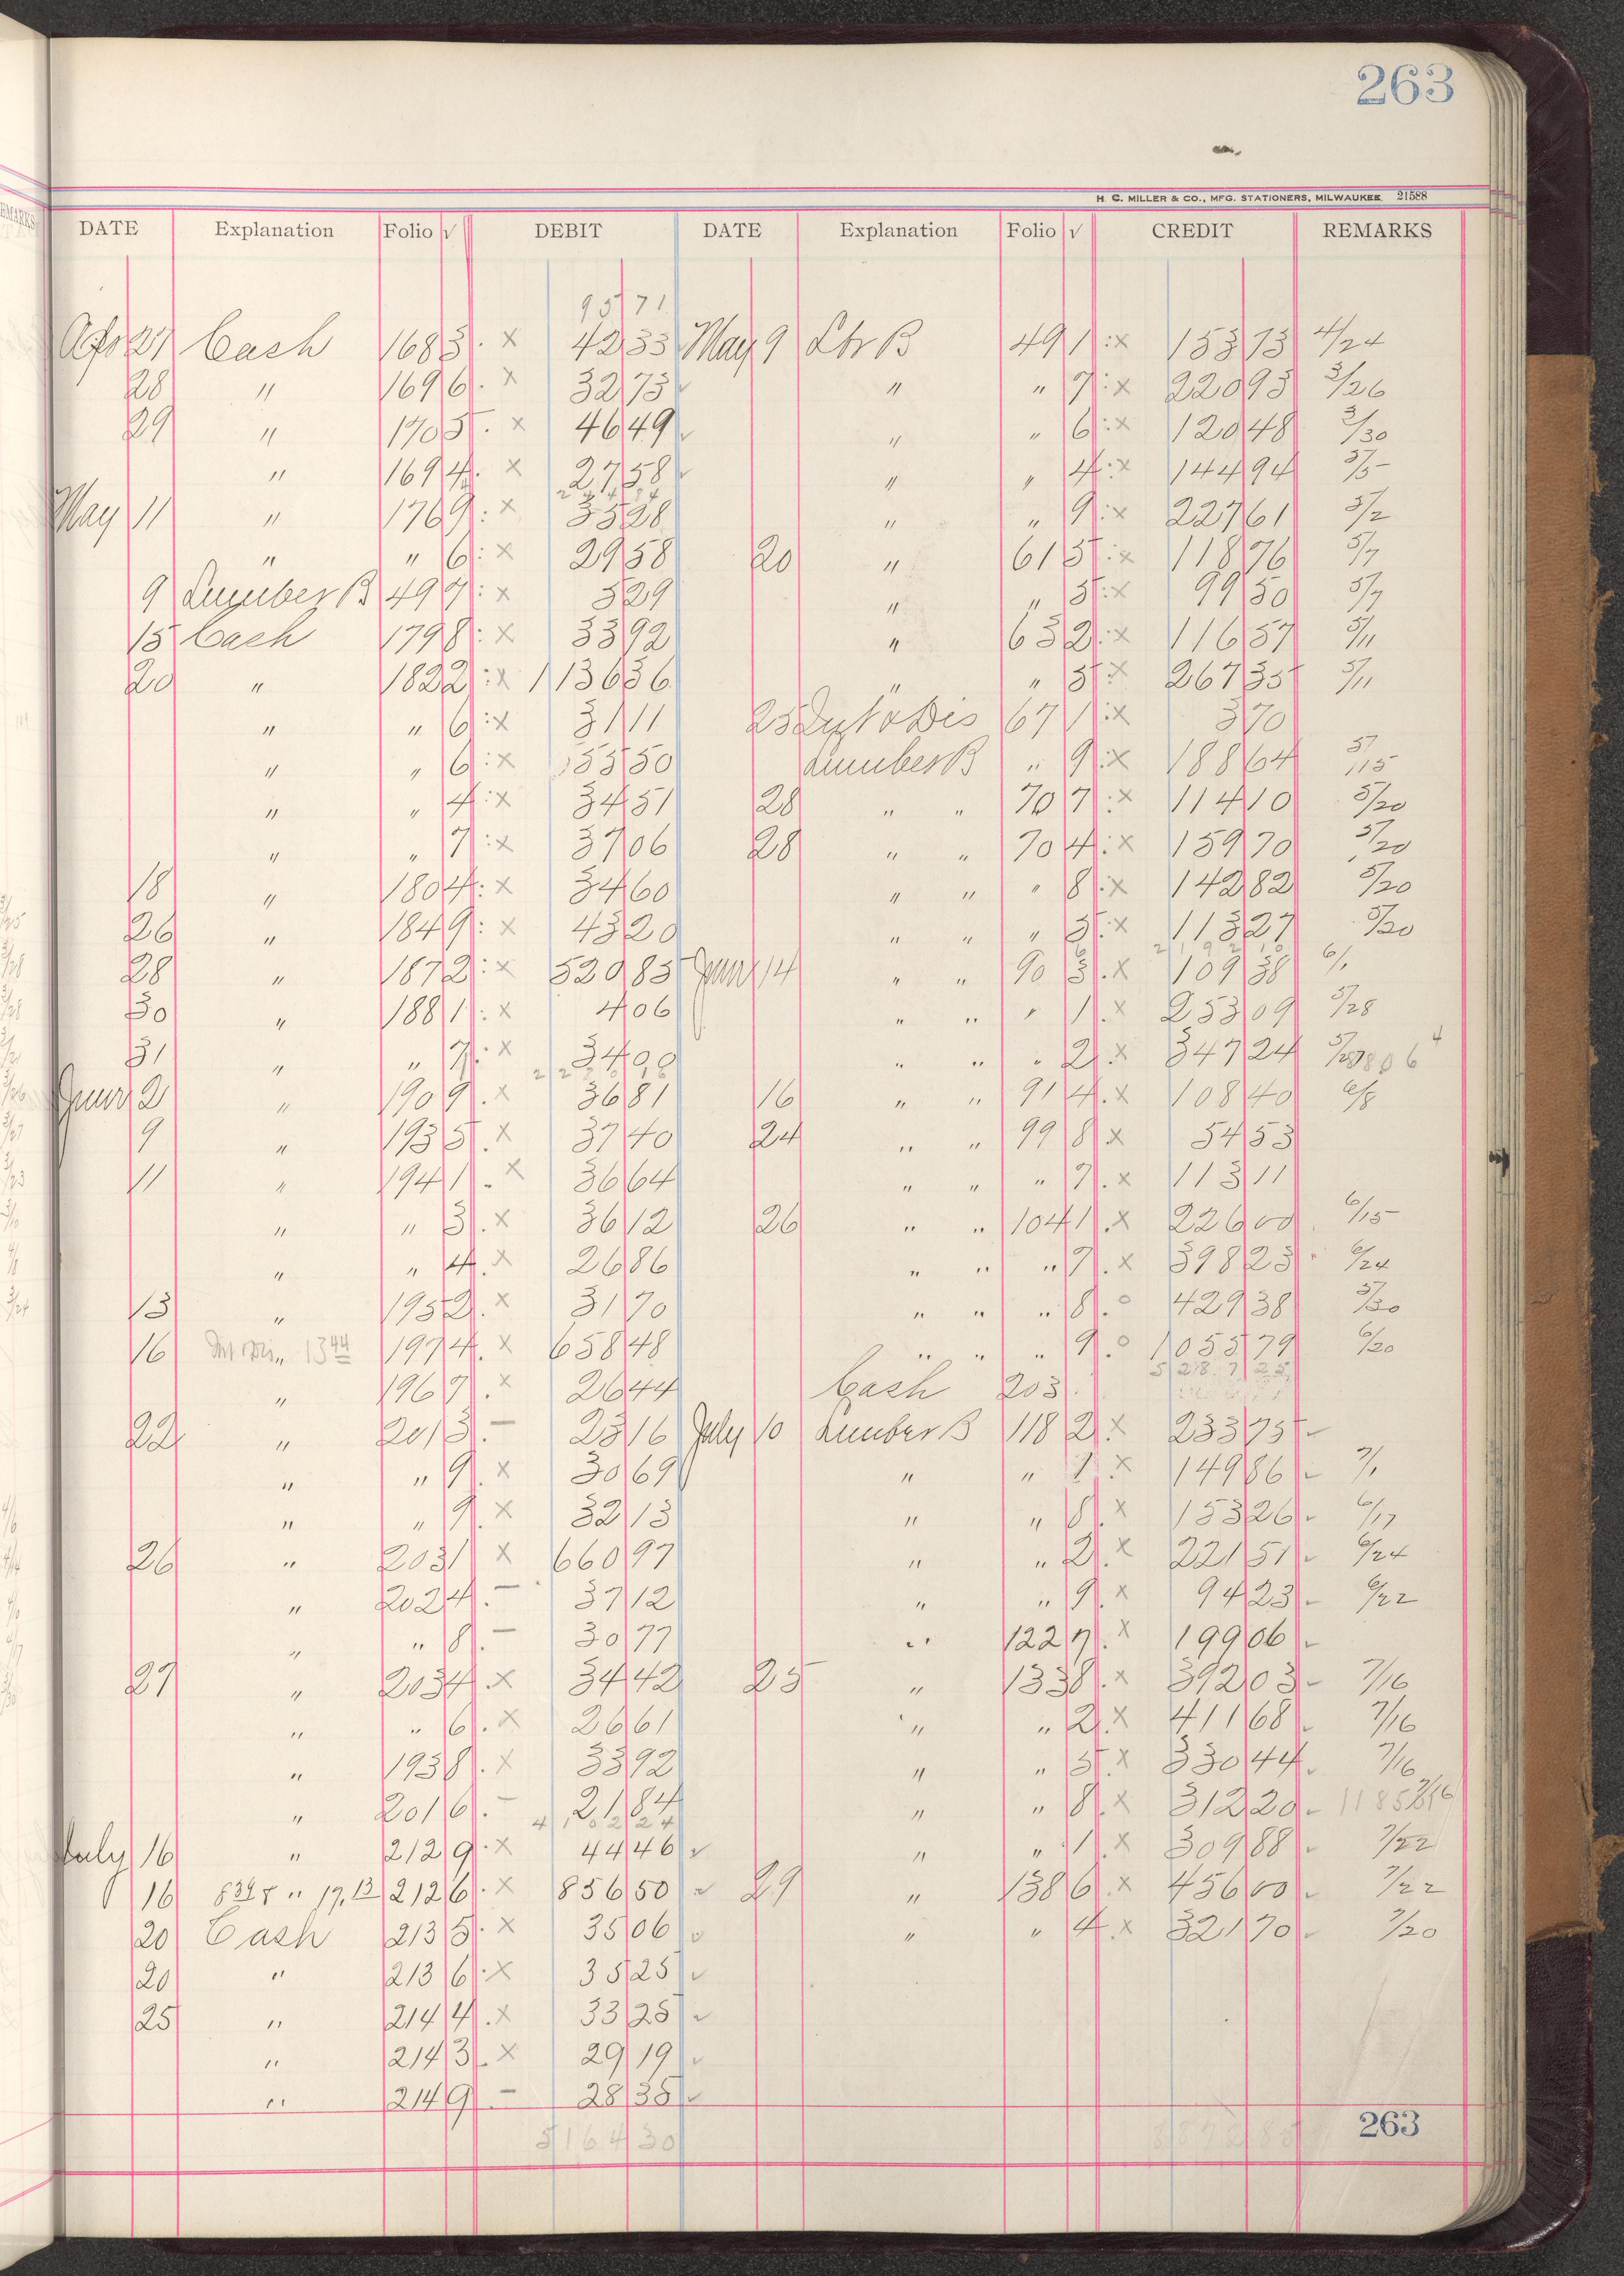 263
H. C. MILLER & CO., MFG. STATIONERS, MILWAUKEE. 21588
DATE Explanation Folio √ DEBIT DATE Explanation Folio √ CREDIT REMARKS
95 71
Apr 27 Cash 1683 : × 42 33 May 9 Lbr B 491 : × 153 73 4/24
28 " 1696 . × 32 73 ✓ " " 7 : × 220 93 3/26
29 " 1705 . × 46 49 ✓ " " 6 : × 120 48 3/30
" 1694 . × 27 58 ✓ " " 4 : × 144 94 5/5
244 84
May 11 " 1769 : × 35 28 " " 9 : × 227 61 5/2
" " 6 : × 29 58 20 " 615 : × 118 76 5/7
9 Lumber B 497 : × 5 29 " " 5 : × 99 50 5/7
15 Cash 1798 : × 33 92 " 632 : × 116 57 5/11
20 " 1822 : × 1136 36 " " 5 : × 267 35 5/11
" " 6 : × 31 11 25 Int & Dis 671 : × 3 70
" " 6 : × 55 50 Lumber B " 9 : × 188 64 5/15
" " 4 : × 34 51 28 " " 707 : × 114 10 5/20
" " 7 : × 37 06 28 " " 704 : × 159 70 5/20
18 " 1804 : × 34 60 " " " 8 : × 142 82 5/20
26 " 1849 : × 43 20 " " " 5 : × 113 27 5/20
28 " 1872 : × 520 85 June 14 " " 903 . × 109 38 6/1
30 " 1881 : × 4 06 " " " 1 . × 253 09 5/28
31 " " 7 : × 34 00 " " " 2 . × 347 24
June 2 " 1909 . × 36 81 16 " " 914 . × 108 40 6/8
9 " 1935 . × 37 40 24 " " 998 × 54 53
11 " 1941 . × 36 64 " " " 7 . × 113 11
" " 3 . × 36 12 26 " " 1041 . × 226 00 6/15
" " 4 . × 26 86 " " " 7 . × 398 23 6/24
13 " 1952 . × 31 70 " " " 8 . o 429 38 5/30
16 " 13 44 1974 . × 658 48 " " " 9 . o 1055 79 6/20
" 1967 . × 26 44 Cash 203
22 " 2013 . – 23 16 July 10 Lumber B 1182 . × 233 75 ✓
" " 9 . × 30 69 " " 1 . × 149 86 ✓ 7/1
" " 9 . × 32 13 " " 8 . × 153 26 ✓ 6/17
26 " 2031 × 660 97 " " 2 . × 221 51 ✓ 6/24
" 2024 . – 37 12 " " 9 . × 94 23 ✓ 6/22
" " 8 . – 30 77 " 1227 . × 199 06 ✓
27 " 2034 . × 34 42 25 " 1338 . × 392 03 ✓ 7/16
" " 6 . × 26 61 " " 2 . × 411 68 ✓ 7/16
" 1938 . × 33 92 " " 5 . × 330 44 ✓ 7/16
" 2016 . – 21 84 " " 8 . × 312 20 ✓
410 2 24
July 16 " 2129 . × 44 46 ✓ " " 1 . × 309 88 ✓ 7/22
16 " 17.13 2126 . × 856 50 ✓ 29 " 1386 . × 456 00 ✓ 7/22
20 Cash 2135 . × 35 06 ✓ " " 4 . × 321 70 ✓ 7/20
20 " 2136 . × 35 25 ✓
25 " 2144 . × 33 25 ✓
" 2143 . × 29 19 ✓
" 2149 . – 28 35 ✓
263
5164 30